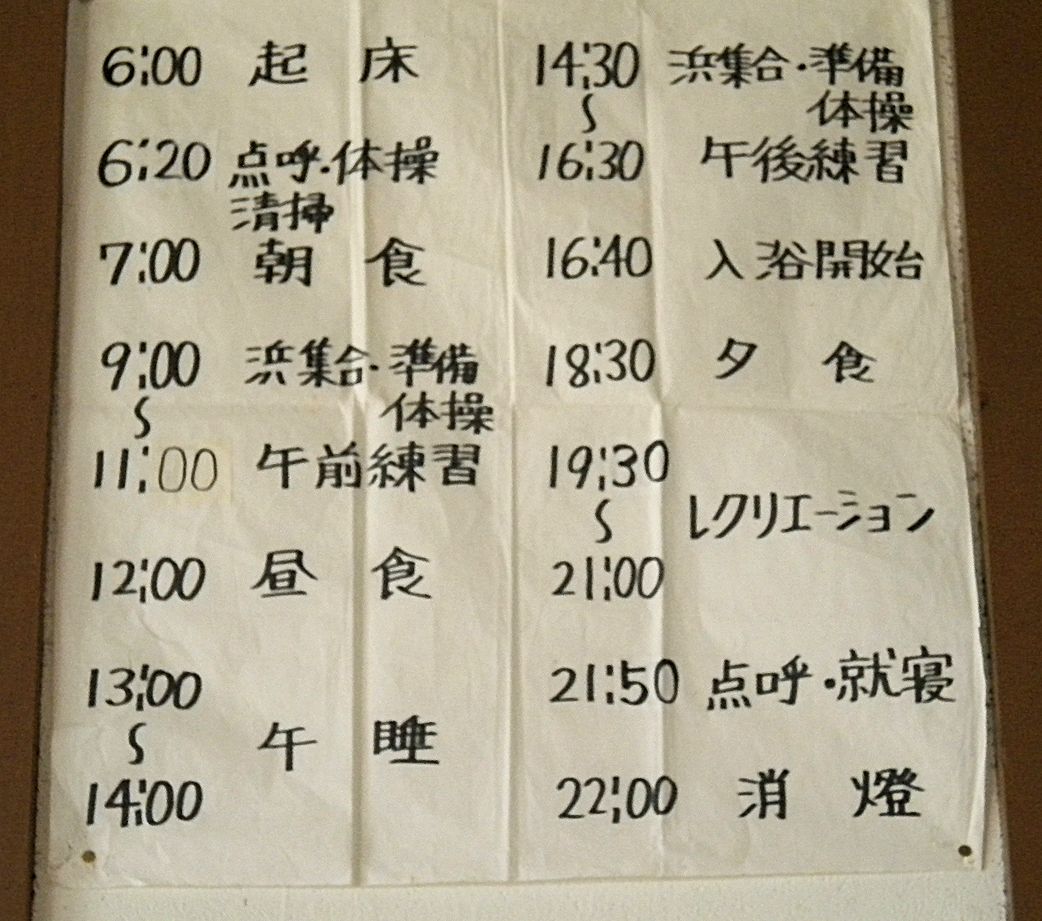 6:00 起床
6:20 点呼・体操
清掃
7:00 朝食
9:00 浜集合・準備
〜 体操
11:00 午前練習
12:00 昼食
13:00
〜 午睡
14:00
14:30 浜集合・準備
〜 体操
16:30 午後練習
16:40 入浴開始
18:30 夕食
19:30
〜 レクリエーション
21:00
21:50 点呼・就寝
22:00 消燈